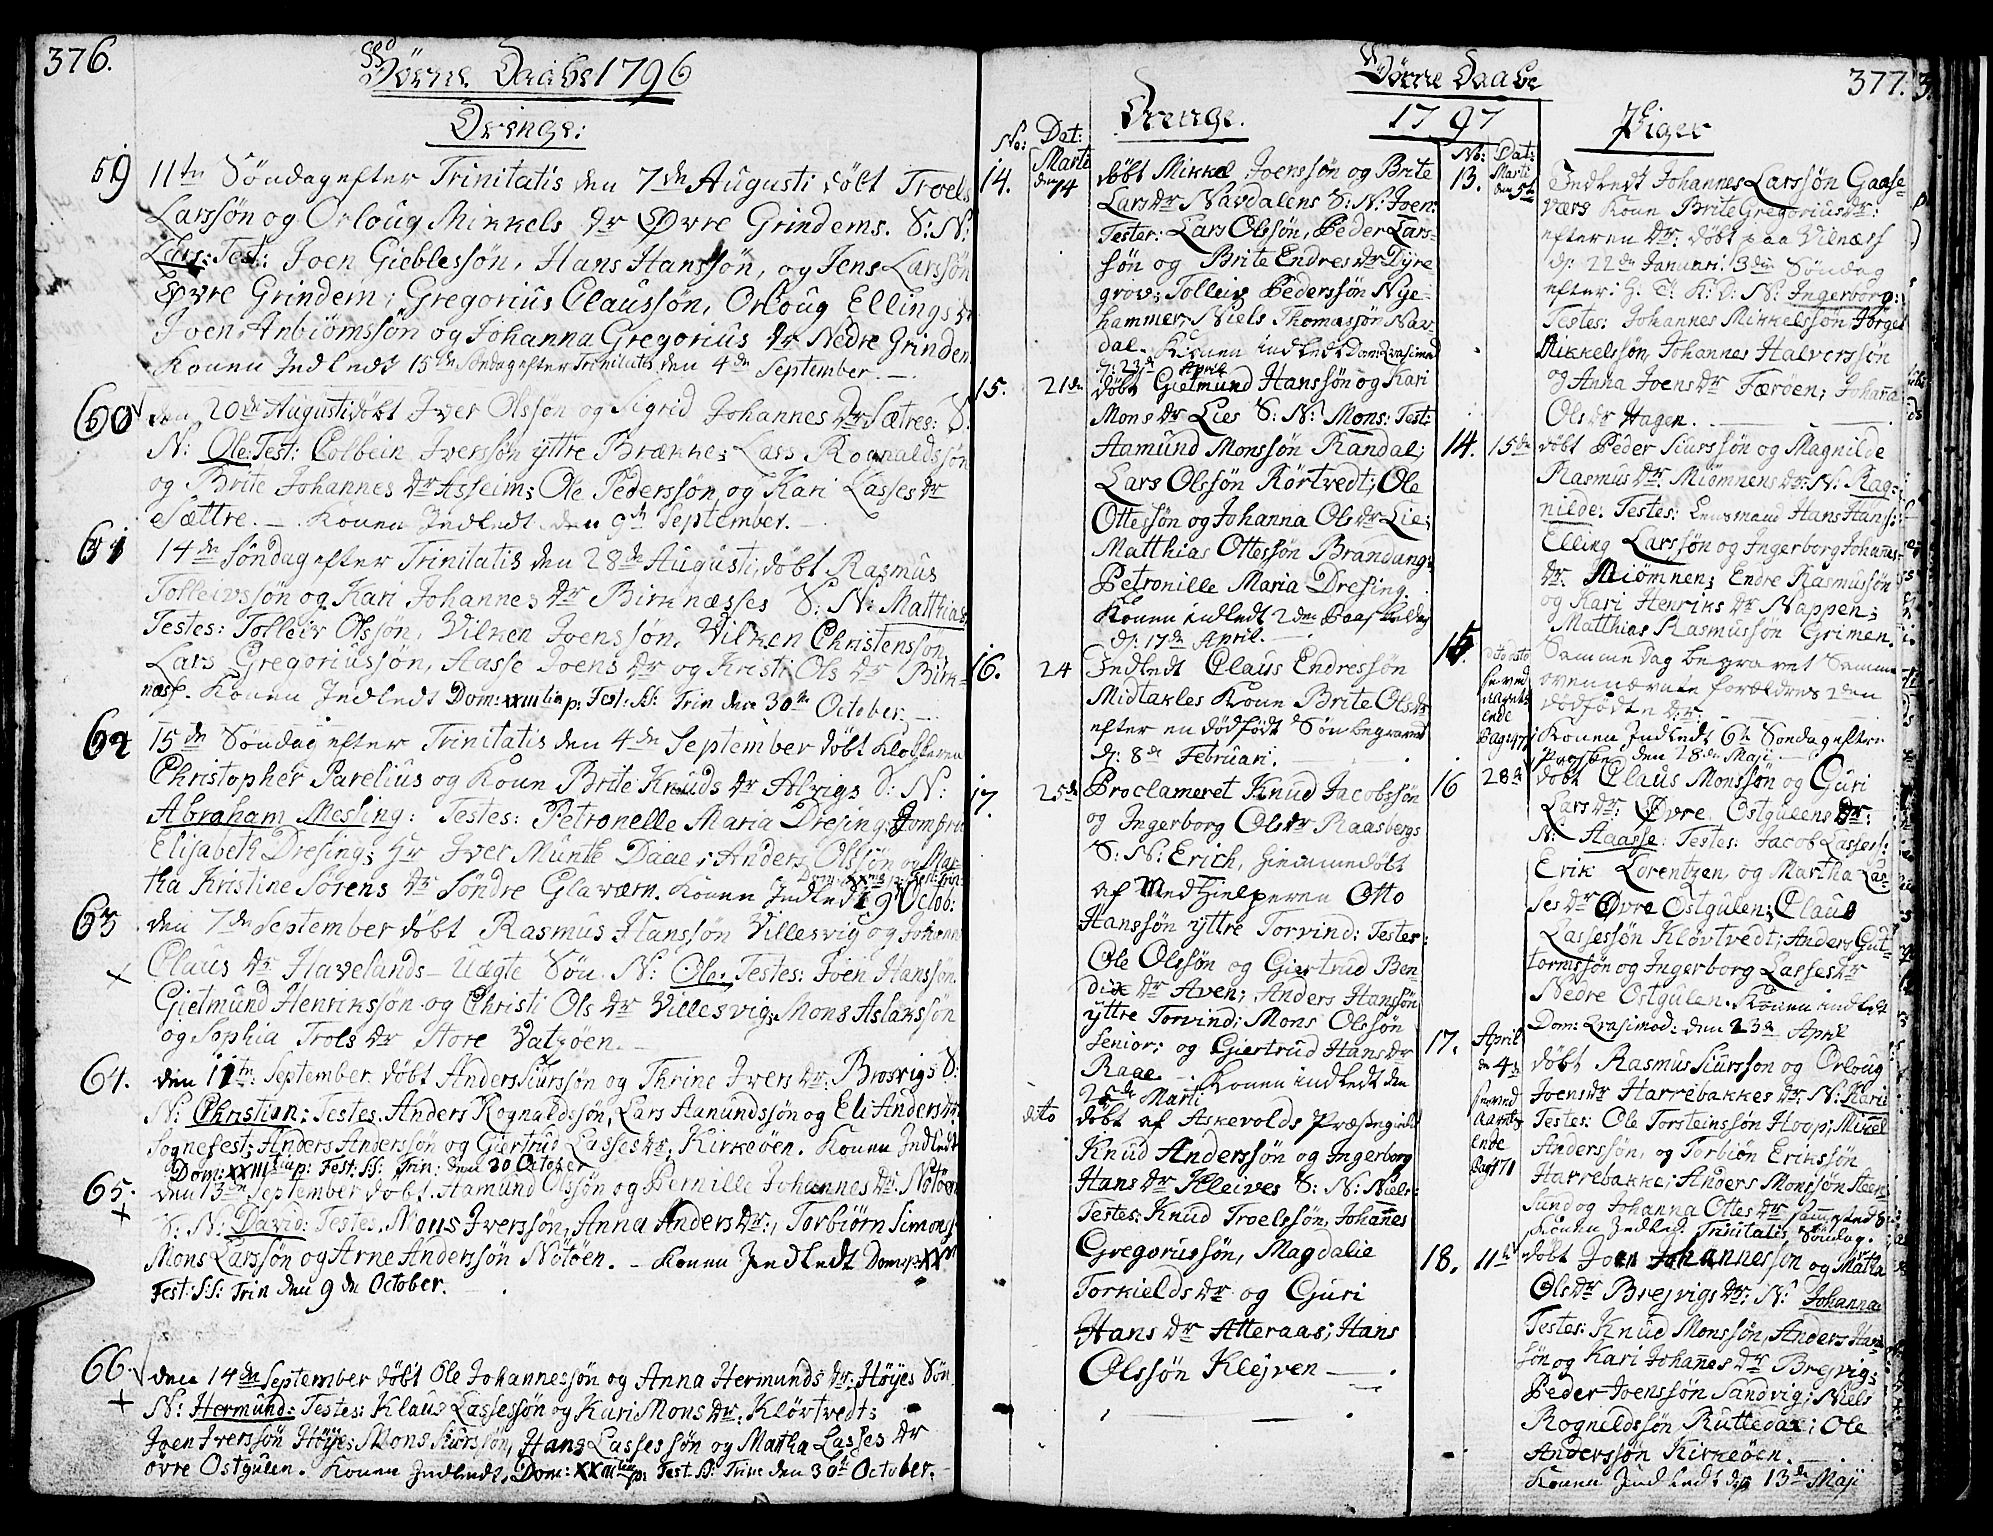 376.
Børne Daabe 1796
Drenge:
59 11te Søndag efter Trinitatis den 7de Augusti døbt Troels
Larssøn og Orloug Mikkels Dr Øvre Grindems. S: N:
Lars: Test: Joen Gieblessøn, Hans Hanssøn, og Jens Larssøn
Øvre Grindem; Gregorius Claussøn, Orloug Ellings Dr
Joen Anbiørnssøn og Johanna Gregorius Dr Nedre Grindem
Konen Indledt 15de Søndag efter Trinitatis den 4de September. —
60 den 20de Augusti døbt Iver Olssøn og Sigrid Johannes Dr Sætres: S:
N: Ole: Test: Colbein Iverssøn yttre Brække; Lass Rognaldssøn
og Brite Johannes Dr Asseim; Ole Pederssøn og Kari Lasses Dr
Sættre. — Konen Indledt den 9de September. —
61 14de Søndag efter Trinitatis den 28de Augusti, døbt Rasmus
Tolleivssøn og Kari Johannes Dr Birknæsses S: N: Matthias
Testes: Tolleiv Olssøn, Vilken Joenssøn, Vilken Christenssøn
Lars Gregoriussøn, Aasse Joens Dr og Kristi Ols Dr Birk-
næss. Konen Indledt Dom: XXIII tia p: Fest: SS: Trin den 30te October. —
62 15de Søndag efter Trinitatis den 4de September døbt Klokkeren
Christopher Parelius og Konn Brite Knuds Dr Alvigs S: N:
Abraham Mesling: Testes: Petronelle Maria Dresing; Jomfru
Elisabeth Dresing; Hr Iver Munte Daae; Anders Olssøn og Mar-
tha Kristine Sørens Dr Søndre Glaværn. Konen Indledt 9 Octob:
63 den 7de September døbt Rasmus Hanssøn Villesvig og Johann
Claus Dr Havelands — Uægte Søn. N: Ole: Testes: Joen Hanssøn
Gietmund Henrikssøn og Christi Ols Dr Villesvig; Mons Aslakssøn
og Sophia Trols Dr Store Batzøen. —
64. den 11te September døbt Anders Siurssøn og Thrine Ivers Dr. Brosvigs S:
N: Christian: Testes. Anders Rognaldssøn, Lars Aamundssøn og Eli Anders Dr
Sognefest; Anders Anderssøn og Giertrud Lasses Dr. Kirkeøen. Konen Indledt
Dom: XXIII tia p: Fest: SS: Trin: den 30 October
65. den 13de September døbt Aamund Olssøn og Pernille Johannes Dr: Notøen
S: N: David: Testes. Mons Iverssøn, Anna Anders Dr:, Torbiørn Simonss
Mons Larssøn og Arne Anderssøn Notøen. — Konen Indledt Dom: XX
Fest: SS: Trin den 9de October.
66. den 14de September døbt Ole Johannessøn og Anna Hermunds Dr: Høyes Søn
N: Hermund: Testes: Klaus Lassessøn og Kari Mons Dr. Kløvtvedt;
Joen Iverssøn Høye; Mons Siurssøn, Hans Lassessøn og Matha Lasses Dr
øvre Ostgulen. Konen Indledt, Dom: XXIII tia p: Fest. SS: Trin den 30te October. —
377.
Børne Daabe
1797
Drenge.
No: Dat:
14. Marti den 14 døbt Mikkel Joenssøn og Brite
Lars Dr Navdalens S: N: Joen:
Tester: Lars Olssøn, Peder Lars-
søn og Brite Endres Dr Dyre
grov; Tolleiv Pederssøn Nye-
hammer, Niels Thomassøn Nav-
dal. Konen indledt Dom: Qvasimod
d: 23de April
15. 21de døbt Gietmund Hanssøn og Kari
Mons Dr Lies S: N: Mons: Test:
Aamund Monssøn Randal;
Lars Olssøn Kørtvedt; Ole
Ottessøn og Johanna Ols Dr Lie;
Matthias Ottessøn Brandang;
Petronille Maria Dresing.
Konen indledt 2den Paaskedag
d: 17de April. —
16. 24 Indledt Claus Endressøn
Midtakles Kone Brite Ols Dr
efter en dødfødt Søn begravet
d: 8de Februari.
17. 25de Proclameret Knud Jacobssøn
og Ingerborg Ols Dr Raasbergs
S: N: Erich, hiemmedøbt
af Medhielperen Otto
Hanssøn yttre Torvind: Testes:
Ole Olssøn og Giertrud Ben
dix Dr Aven; Anders Hanssøn
yttre Torvind; Mons Olssøn
Senior; og Giertrud Hans Dr
Raae. — Konen indledt den
25de Marti
dito døbt af Askevolds Præstegield
Knud Anderssøn og Ingerborg
Hans Dr Kleives S: N: Niels:
Testes: Knud Troelssøn, Johannes
Gregoriussøn, Magdalie
Torkields Dr og Guri
Hans Dr Atteraas; Hans
Olssøn Klejven —
Piger
No: Dat:
13. Marti den 5te Indledt Johannes Larssøn Gaase-
værs Kone Brite Gregorius Dr:
efter en Dr: døbt paa Vilnæss
d: 22de Januari 3die Søndag
efter H: 3: K: D: N: Ingerborg:
Testes: Johannes Mikkelssøn Jørgen
Mikkelssøn, Johannes Halverssøn
og Anna Joens Dr Færøen; Johanna
Ols Dr Hagen.
14. 15de døbt Peder Siurssøn og Magnilde
Rasmus Dr: Miømnens Dr: N: Rag-
nilde: Testes: Lensmand Hans Hans:
Elling Larssøn og Ingerborg Johannes
Dr. Miømnen; Endre Rasmussøn
og Kari Henriks Dr Nappen;
Matthias Rasmussøn Grimen.
15. Samme dag begravet Samme
ovennævnte forældres den
dødfødte Dr.
Konen Indledt 6te Søndag efter
Paaske den 28de Maji
16 28de døbt Claus Monssøn og Guri
Lars Dr: Øvre Ostgulens Dr:
N: Aaasse: Testes: Jacob Lasses:
Erik Lorentzen, og Martha Las-
ses Dr Øvre Ostgulen; Claus
Lassessøn Kløvtvedt; Anders Gut-
tormssøn og Ingerborg Lasses Dr
Nedre Ostgulen. Konen indledt
Dom: Qvasimod: den 23de April
17. April den 4de døbt Rasmus Siurssøn og Orloug
Joens Dr Harrebakkes Dr: N: Kari:
Testes: Ole Torsteinssøn Hoop; Mikel
Anderssøn, og Torbiøn Erikssøn
Harrebakke; Anders Monssøn Steen-
sund og Johanna Ottes Dr sammested
Konen Indledt Trinitatis Søndag.
18. 11te døbt Joen Johannessøn og Matha
Ols Dr Brejvigs Dr: N: Johanna
Testes: Knud Monssøn, Anders Hans-
søn og Kari Johannes Dr Brejvig;
Peder Joenssøn Sandvig; Niels
Rognildssøn Ruttedal; Ole
Anderssøn Kirkeøen.
Konen Indledt den 13de Maji